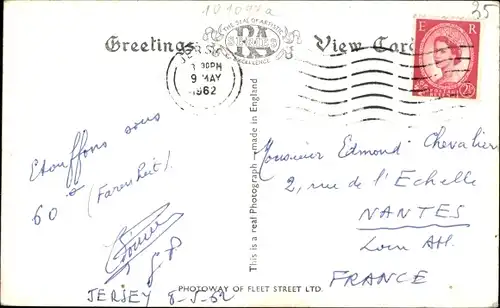 35
Greetings
THE SEAL OF ARTISTIC
RA
SERIES
EXCELLENCE
View Card
E R
JERSEY
30PM
9 MAY
1962
2½
This is a real Photograph - made in England
Etouffons sous
60° (Farenheit).
JERSEY 8-5-62
Monsieur Edmond Chevalier
2, rue de l'Echelle
NANTES
Loire Atl.
FRANCE
PHOTOWAY OF FLEET STREET LTD.